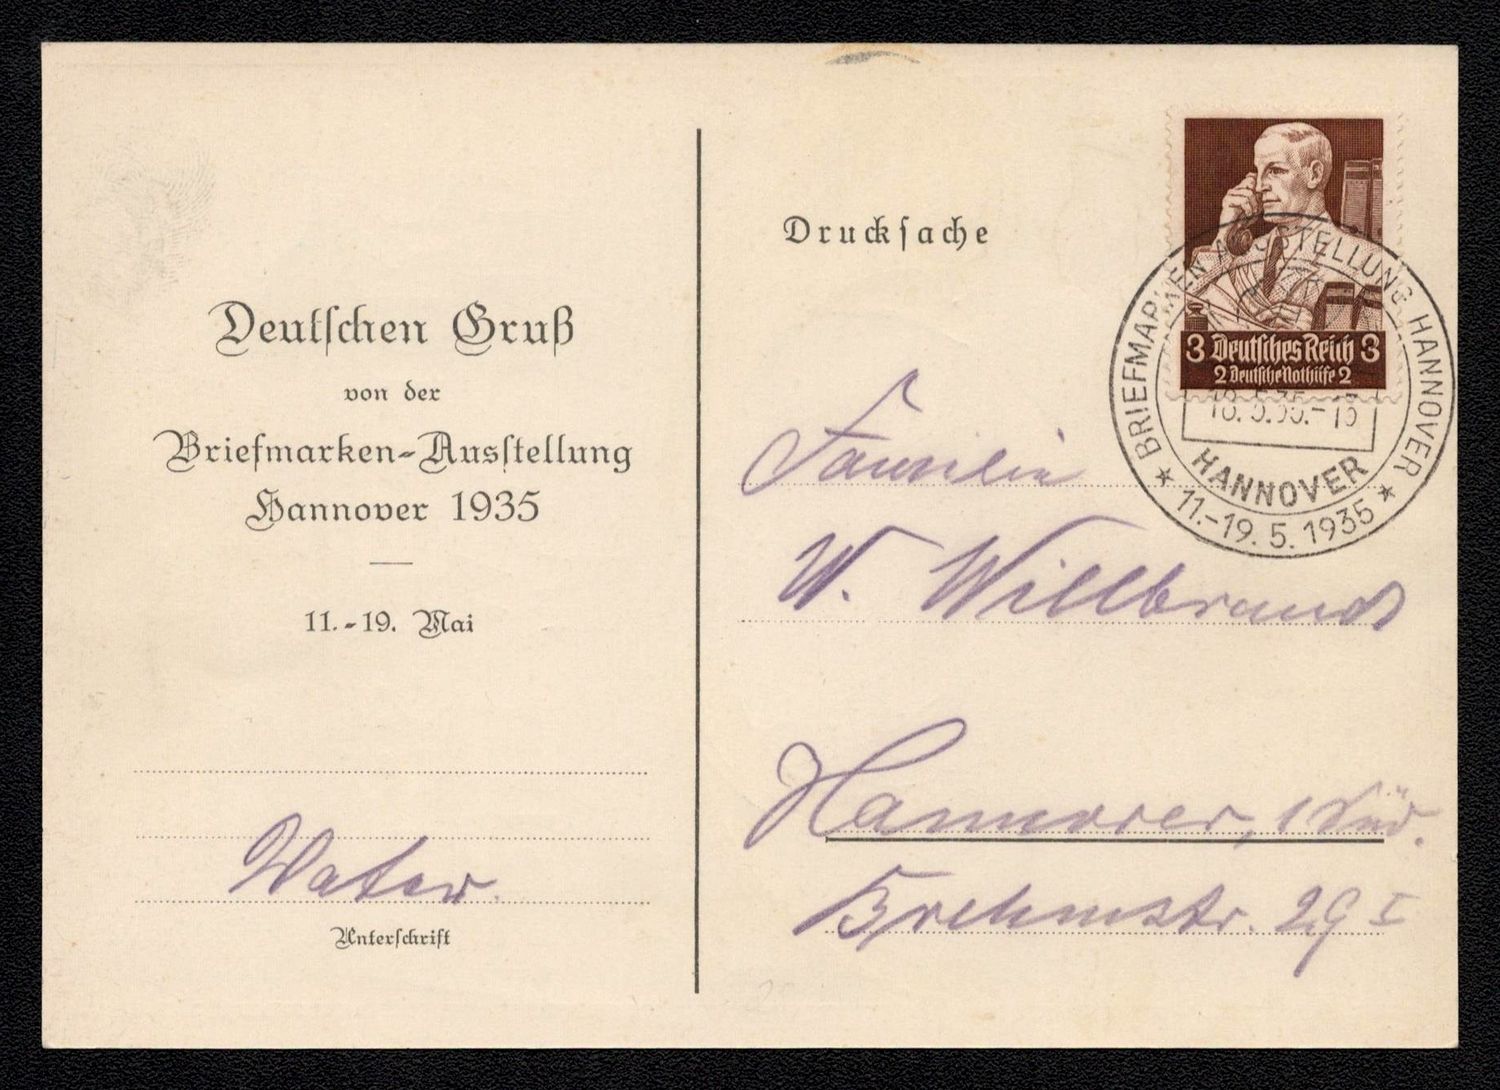 Deutschen Gruß
von der
Briefmarken-Ausstellung
Hannover 1935
11.-19. Mai
Vater.
Unterschrift
Drucksache
3 Deutsches Reich 3
2 Deutsche Nothilfe 2
BRIEFMARKEN AUSSTELLUNG HANNOVER
18.5.35.-13
HANNOVER
* 11.-19. 5. 1935 *
Familie
W. Willbrand
Hannover, 1 Süd.
Brehmstr. 29 I